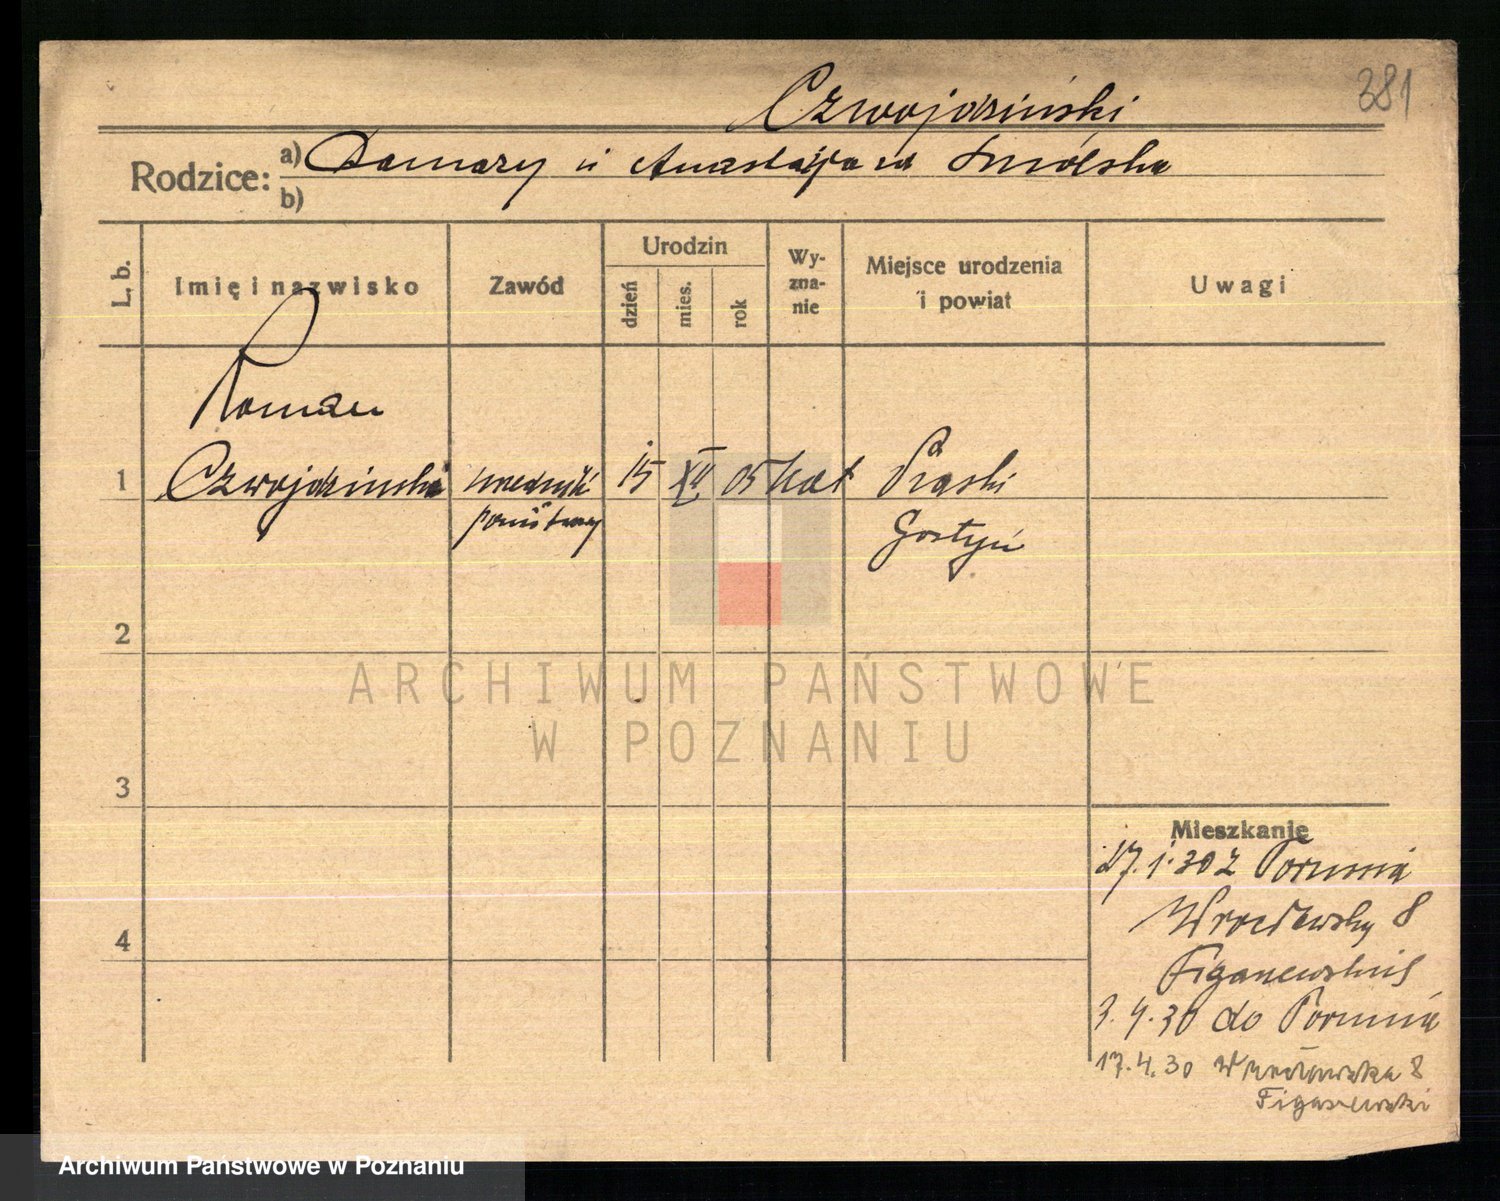 381
Czwojdziński
Rodzice:
a) Damazy i Anastazja zd Smólska
b)
L. b.
Imię i nazwisko
Zawód
Urodzin
dzień
mies.
rok
Wy-
zna-
nie
Miejsce urodzenia
i powiat
Uwagi
Roman
1 Czwojdziński 15 XII 05 kat Piaski
Gostyń
2
3
4
Mieszkanie
27.1.30 z Poznania
Wrocławska 8
Figaszewski
3.4.30 do Poznania
17.4.30 Wrocławska 8
Figaszewski
ARCHIWUM PAŃSTWOWE
W POZNANIU
Archiwum Państwowe w Poznaniu